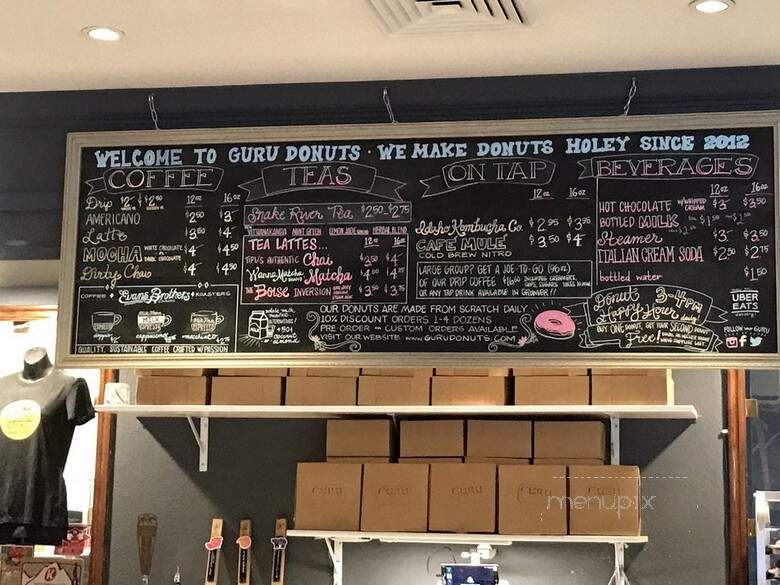 WELCOME TO GURU DONUTS · WE MAKE DONUTS HOLEY SINCE 2012
COFFEE
12oz 16oz
Drip $2 $2
AMERICANO $2.50 $3
Latte $3.50 $4
MOCHA WHITE CHOCOLATE OR DARK CHOCOLATE $4 $4.50
Dirty Chai $4 $4.50
COFFEE Evans Brothers ROASTERS
MILK
cappuccino
QUALITY, SUSTAINABLE COFFEE CRAFTED W/PASSION
TEAS
Snake River Tea $2.50-$2.75
MINT GREEN HERBAL BLEND
TEA LATTES... 12oz 16oz
TIPU'S AUTHENTIC Chai $2.50 $4
Wanna Matcha Matcha $4.00
THE BOISE INVERSION $3.50 $3.75
ON TAP
12oz 16oz
Idaho Kombucha Co. $2.95 $3.95
CAFÉ MULE $3.50 $4
COLD BREW NITRO
LARGE GROUP? GET A JOE-TO-GO (96oz)
OF OUR DRIP COFFEE
OR ANY TAP DRINK AVAILABLE IN GROWLER!!
BEVERAGES
12oz 16oz
HOT CHOCOLATE W/WHIPPED CREAM $3 $3.50
BOTTLED MILK $1.50
Steamer $3
ITALIAN CREAM SODA $2.50 $2.75
bottled water $1.50
whole milk
ALTERNATIVES
+50¢
COCONUT
ALMOND
OUR DONUTS ARE MADE FROM SCRATCH DAILY
10% DISCOUNT ORDERS 1-4 DOZENS
PRE ORDER CUSTOM ORDERS AVAILABLE
VISIT OUR WEBSITE WWW.GURUDONUTS.COM
Donut Happy Hour 3-4PM
BUY ONE DONUT, GET YOUR SECOND DONUT
Free!
UBER
EATS
FOLLOW
GURU GURU GURU GURU GURU
menupix